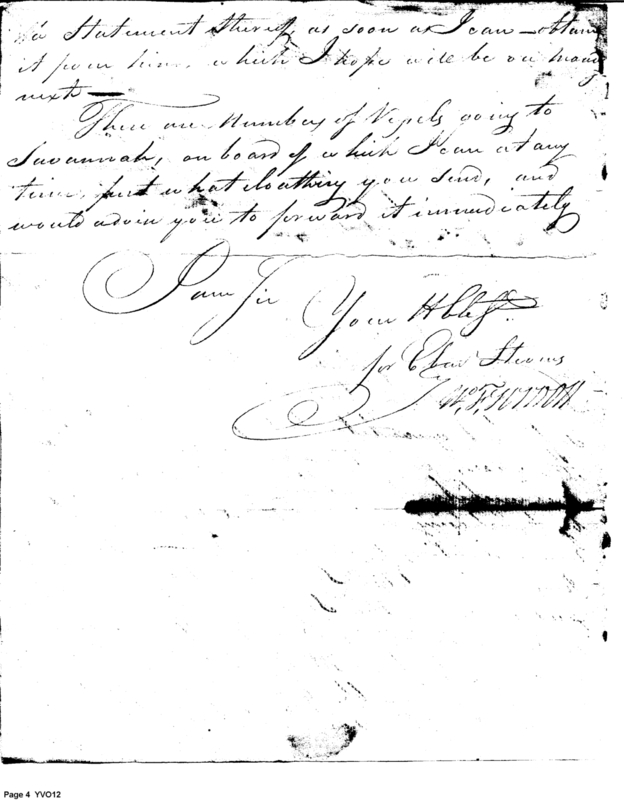 a Statement thereof as soon as I can obtain
it from him, which I hope will be on monday
next —
There are Numbers of Vessels going to
Savannah, on board of which I can at any
time, put what cloathing you send, and
would advise you to forward it immediately
I am Sir
Your Hble St.
for Eben Stevens
Page 4 YVO12